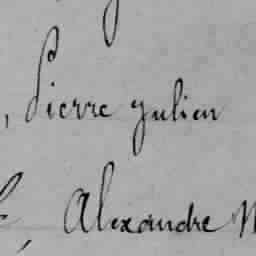 , Pierre Julien
, Alexandre